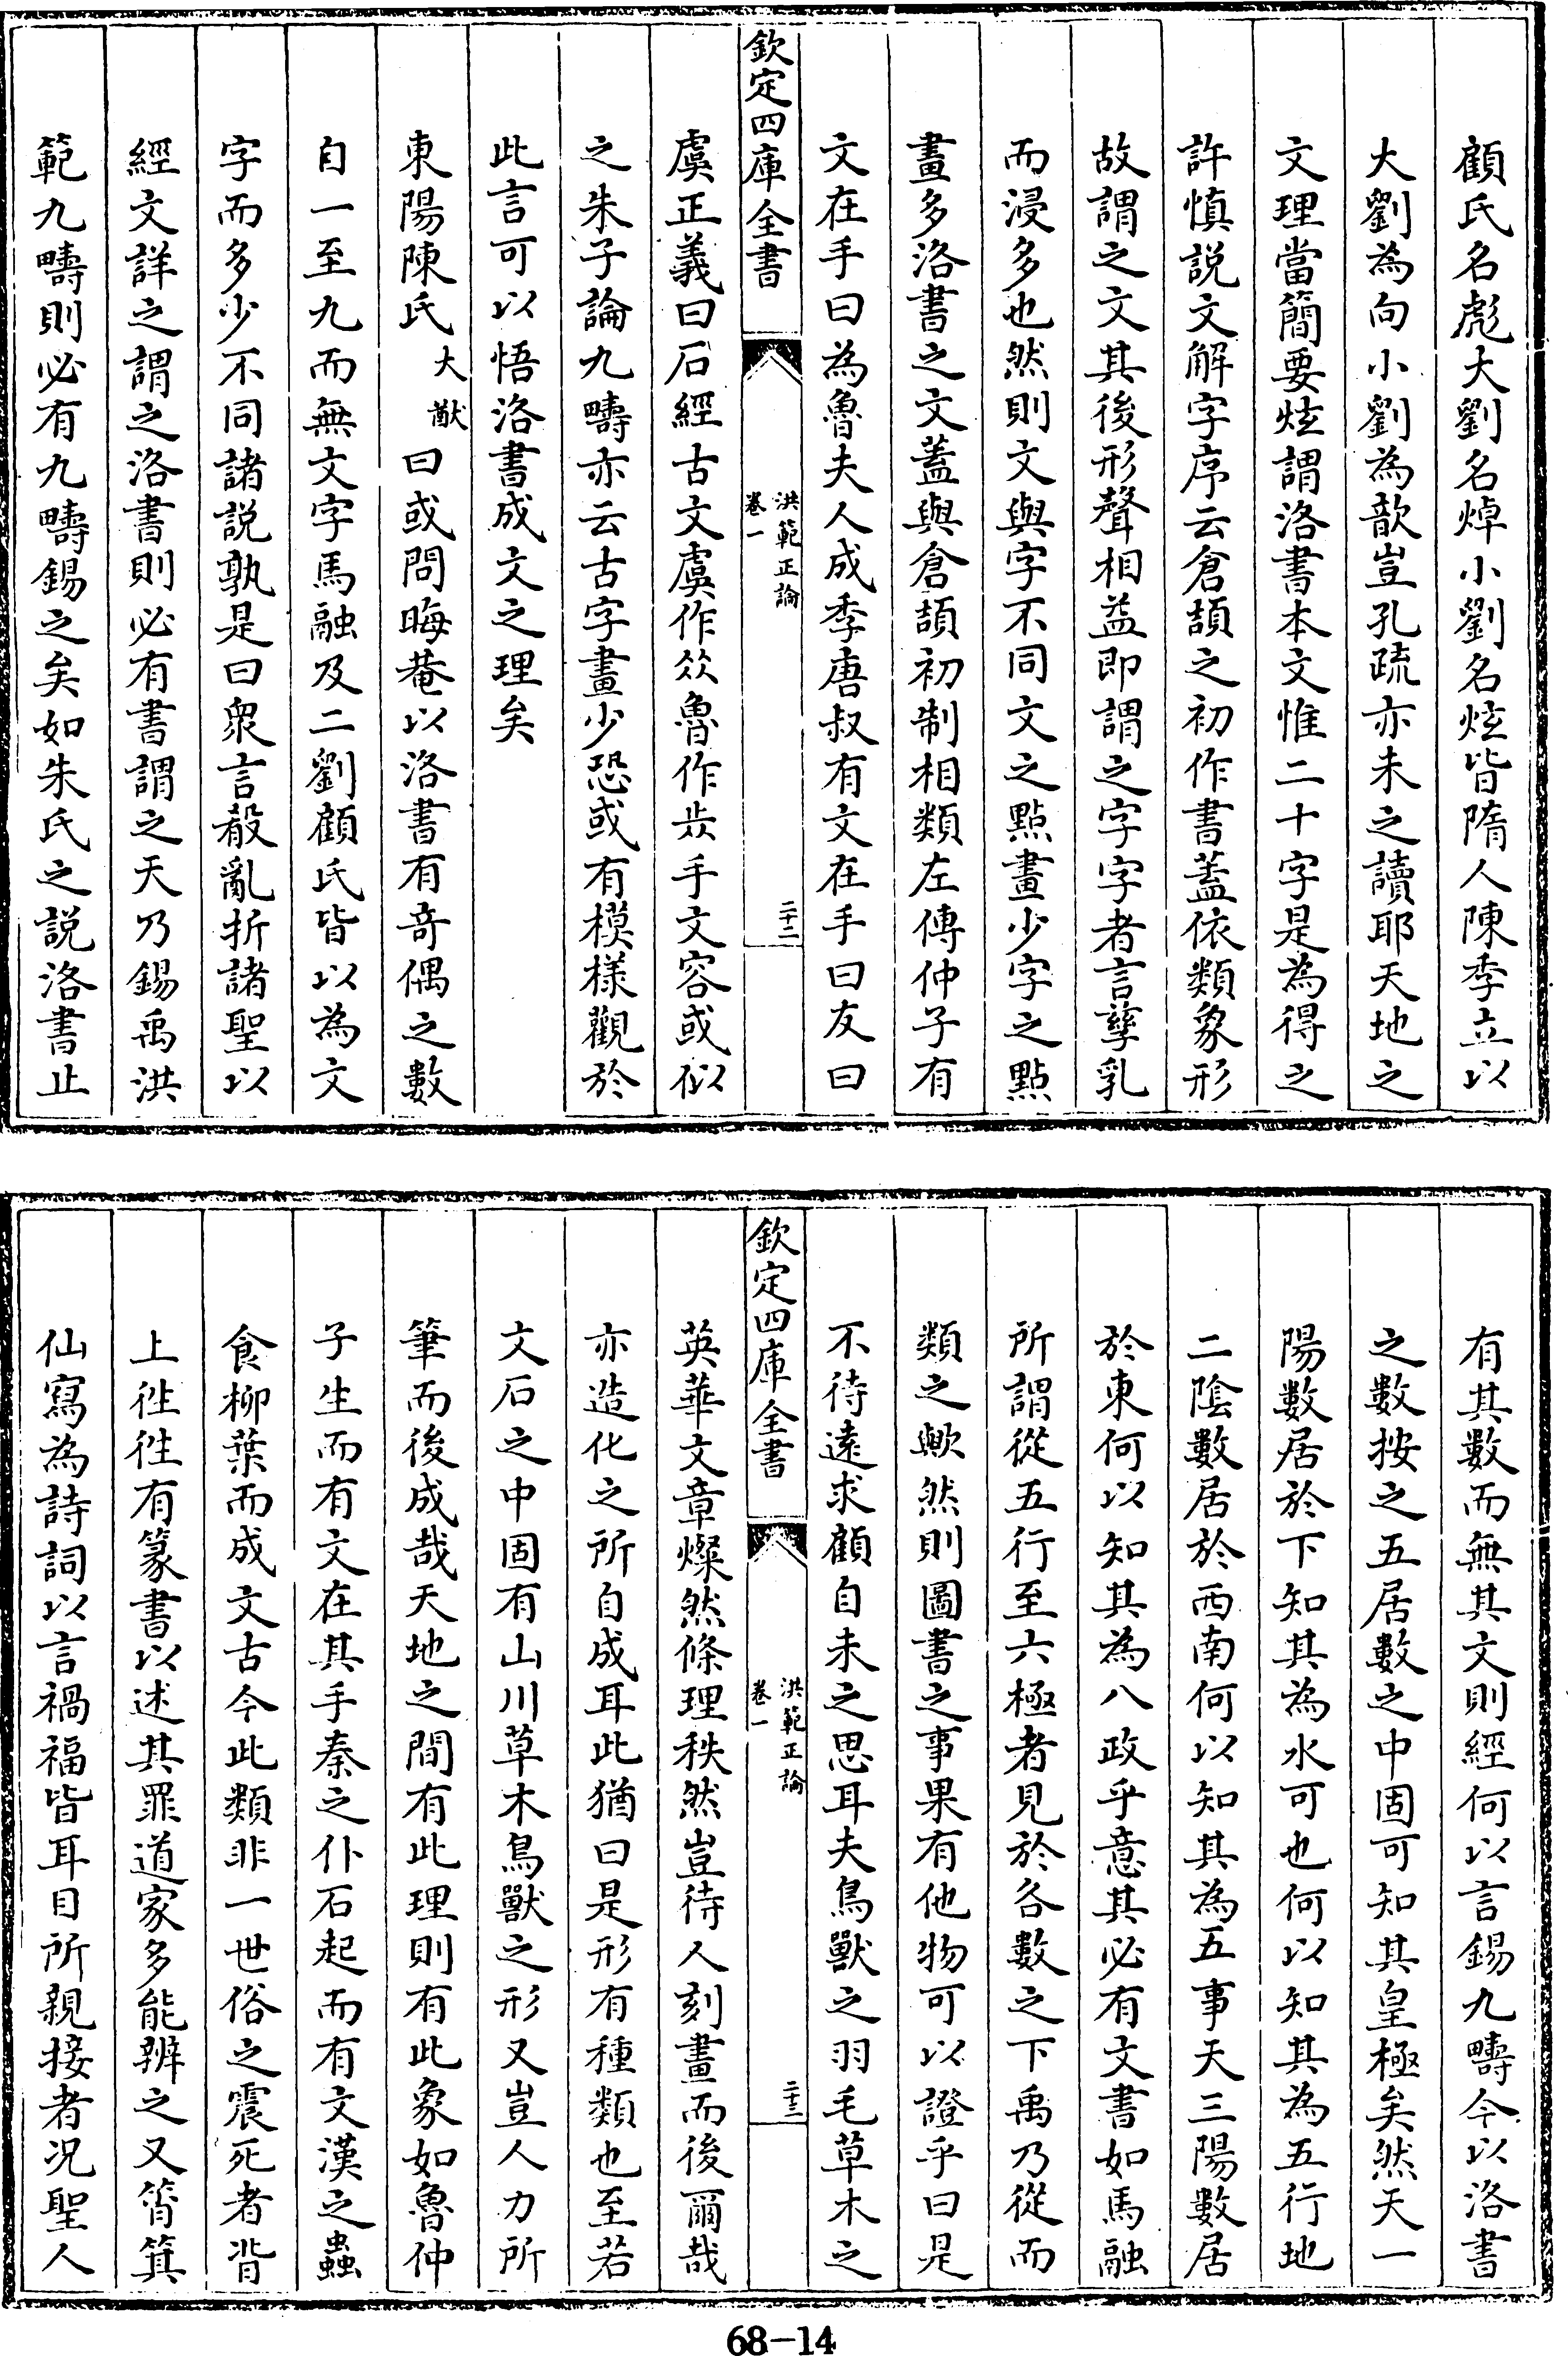 顧氏名彪大劉名焯小劉名炫皆隋人陳季立以
大劉為向小劉為歆豈孔疏亦未之讀耶天地之
文理當簡要炫謂洛書本文惟二十字是為得之
許慎説文解字序云倉頡之初作書蓋依類象形
故謂之文其後形聲相益即謂之字字者言孳乳
而浸多也然則文與字不同文之點畫少字之點
畫多洛書之文蓋與倉頡初制相類左傳仲子有
文在手曰為魯夫人成季唐叔有文在手曰友曰
欽定四庫全書
洪範正論
卷一
二十二
虞正義曰石經古文虞作𠈌魯作㳄手文容或似
之朱子論九疇亦云古字畫少恐或有模樣觀於
此言可以悟洛書成文之理矣
東陽陳氏大猷曰或問晦菴以洛書有竒偶之數
自一至九而無文字馬融及二劉顧氏皆以為文
字而多少不同諸説孰是曰衆言殽亂折諸聖以
經文詳之謂之洛書則必有書謂之天乃錫禹洪
範九疇則必有九疇錫之矣如朱氏之説洛書止
有其數而無其文則經何以言錫九疇今以洛書
之數按之五居數之中固可知其皇極矣然天一
陽數居於下知其為水可也何以知其為五行地
二陰數居於西南何以知其為五事天三陽數居
於東何以知其為八政乎意其必有文書如馬融
所謂從五行至六極者見於各數之下禹乃從而
類之歟然則圖書之事果有他物可以證乎曰是
不待逺求顧自未之思耳夫鳥獸之羽毛草木之
欽定四庫全書
洪範正論
卷一
二十三
英華文章燦然條理秩然豈待人刻畫而後爾哉
亦造化之所自成耳此猶曰是形有種類也至若
文石之中固有山川草木鳥獸之形又豈人力所
筆而後成哉天地之間有此理則有此象如魯仲
子生而有文在其手秦之仆石起而有文漢之蟲
食柳葉而成文古今此類非一世俗之震死者背
上徃徃有篆書以述其罪道家多能辨之又筲箕
仙寫為詩詞以言禍福皆耳目所親接者况聖人
68-14